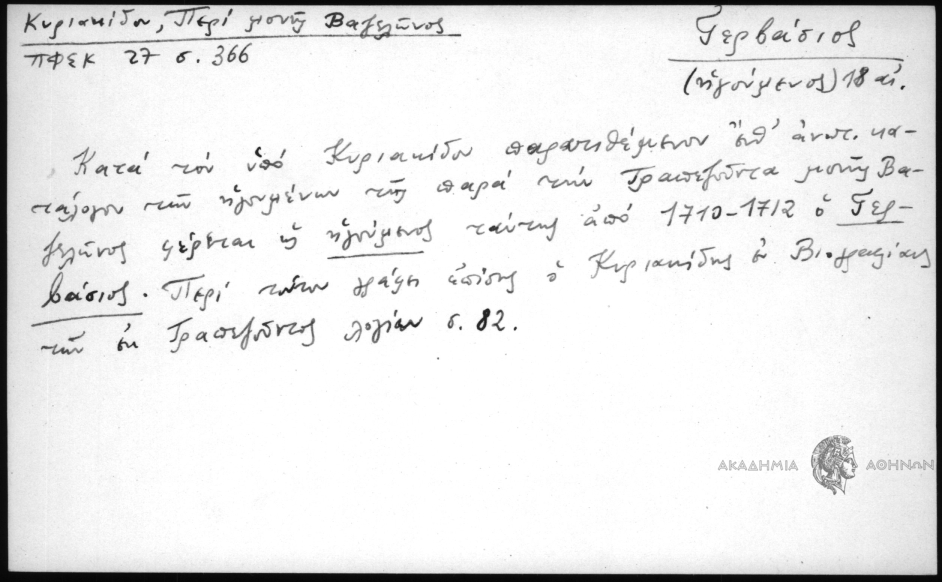 Κυριακίδου, Περί μονῆς Βαζελῶνος
ΠΦΣΚ 27 σ. 366
Γερβάσιος
(ἡγούμενος) 18 αἰ.
Κατά τόν ὑπό Κυριακίδου παρατιθέμενον ἀνωτ. κα-
τάλογον τῶν ἡγουμένων τῆς παρά τήν Τραπεζοῦντα μονῆς Βα-
ζελῶνος φέρεται ὡς ἡγούμενος ταύτης ἀπό 1710-1712 ὁ Γερ-
βάσιος. Περί τούτου γράφει ἐπίσης ὁ Κυριακίδης ἐν Βιογραφίαις
τῶν ἐκ Τραπεζοῦντος λογίων σ. 82.
ΑΚΑΔΗΜΙΑ ΑΘΗΝΩΝ